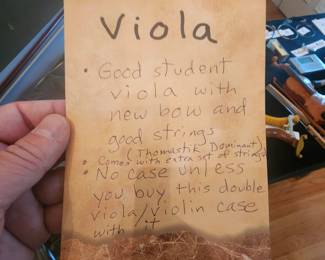 Viola
• Good student
viola with
new bow and
good strings
(Thomastik Dominant)
• Comes with extra set of strings
• No case unless
you buy this double
viola/violin case
with it